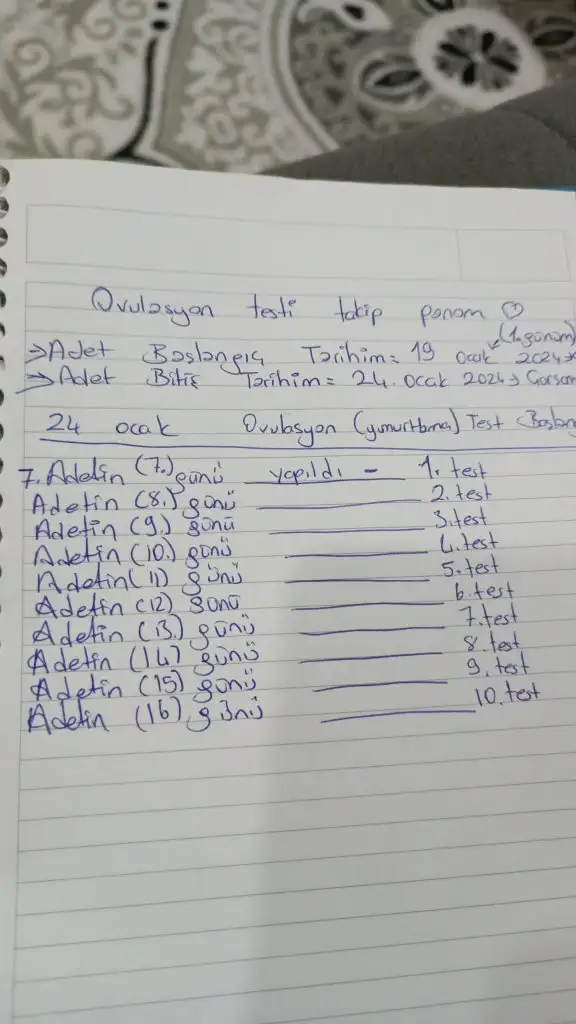 Ovulasyon testi takip panom ♡
(1.günüm)
→Adet Başlangıç Tarihim= 19 Ocak 2024→
→Adet Bitiş Tarihim= 24. Ocak 2024→
24 ocak Ovulasyon (yumurtlama) Test
7. Adetin (7.) günü yapıldı - 1. test
Adetin (8.) günü 2. test
Adetin (9.) günü 3. test
Adetin (10.) günü 4. test
Adetin (11) günü 5. test
Adetin (12) günü 6. test
Adetin (13.) günü 7. test
Adetin (14) günü 8. test
Adetin (15) günü 9. test
Adetin (16) günü 10. test